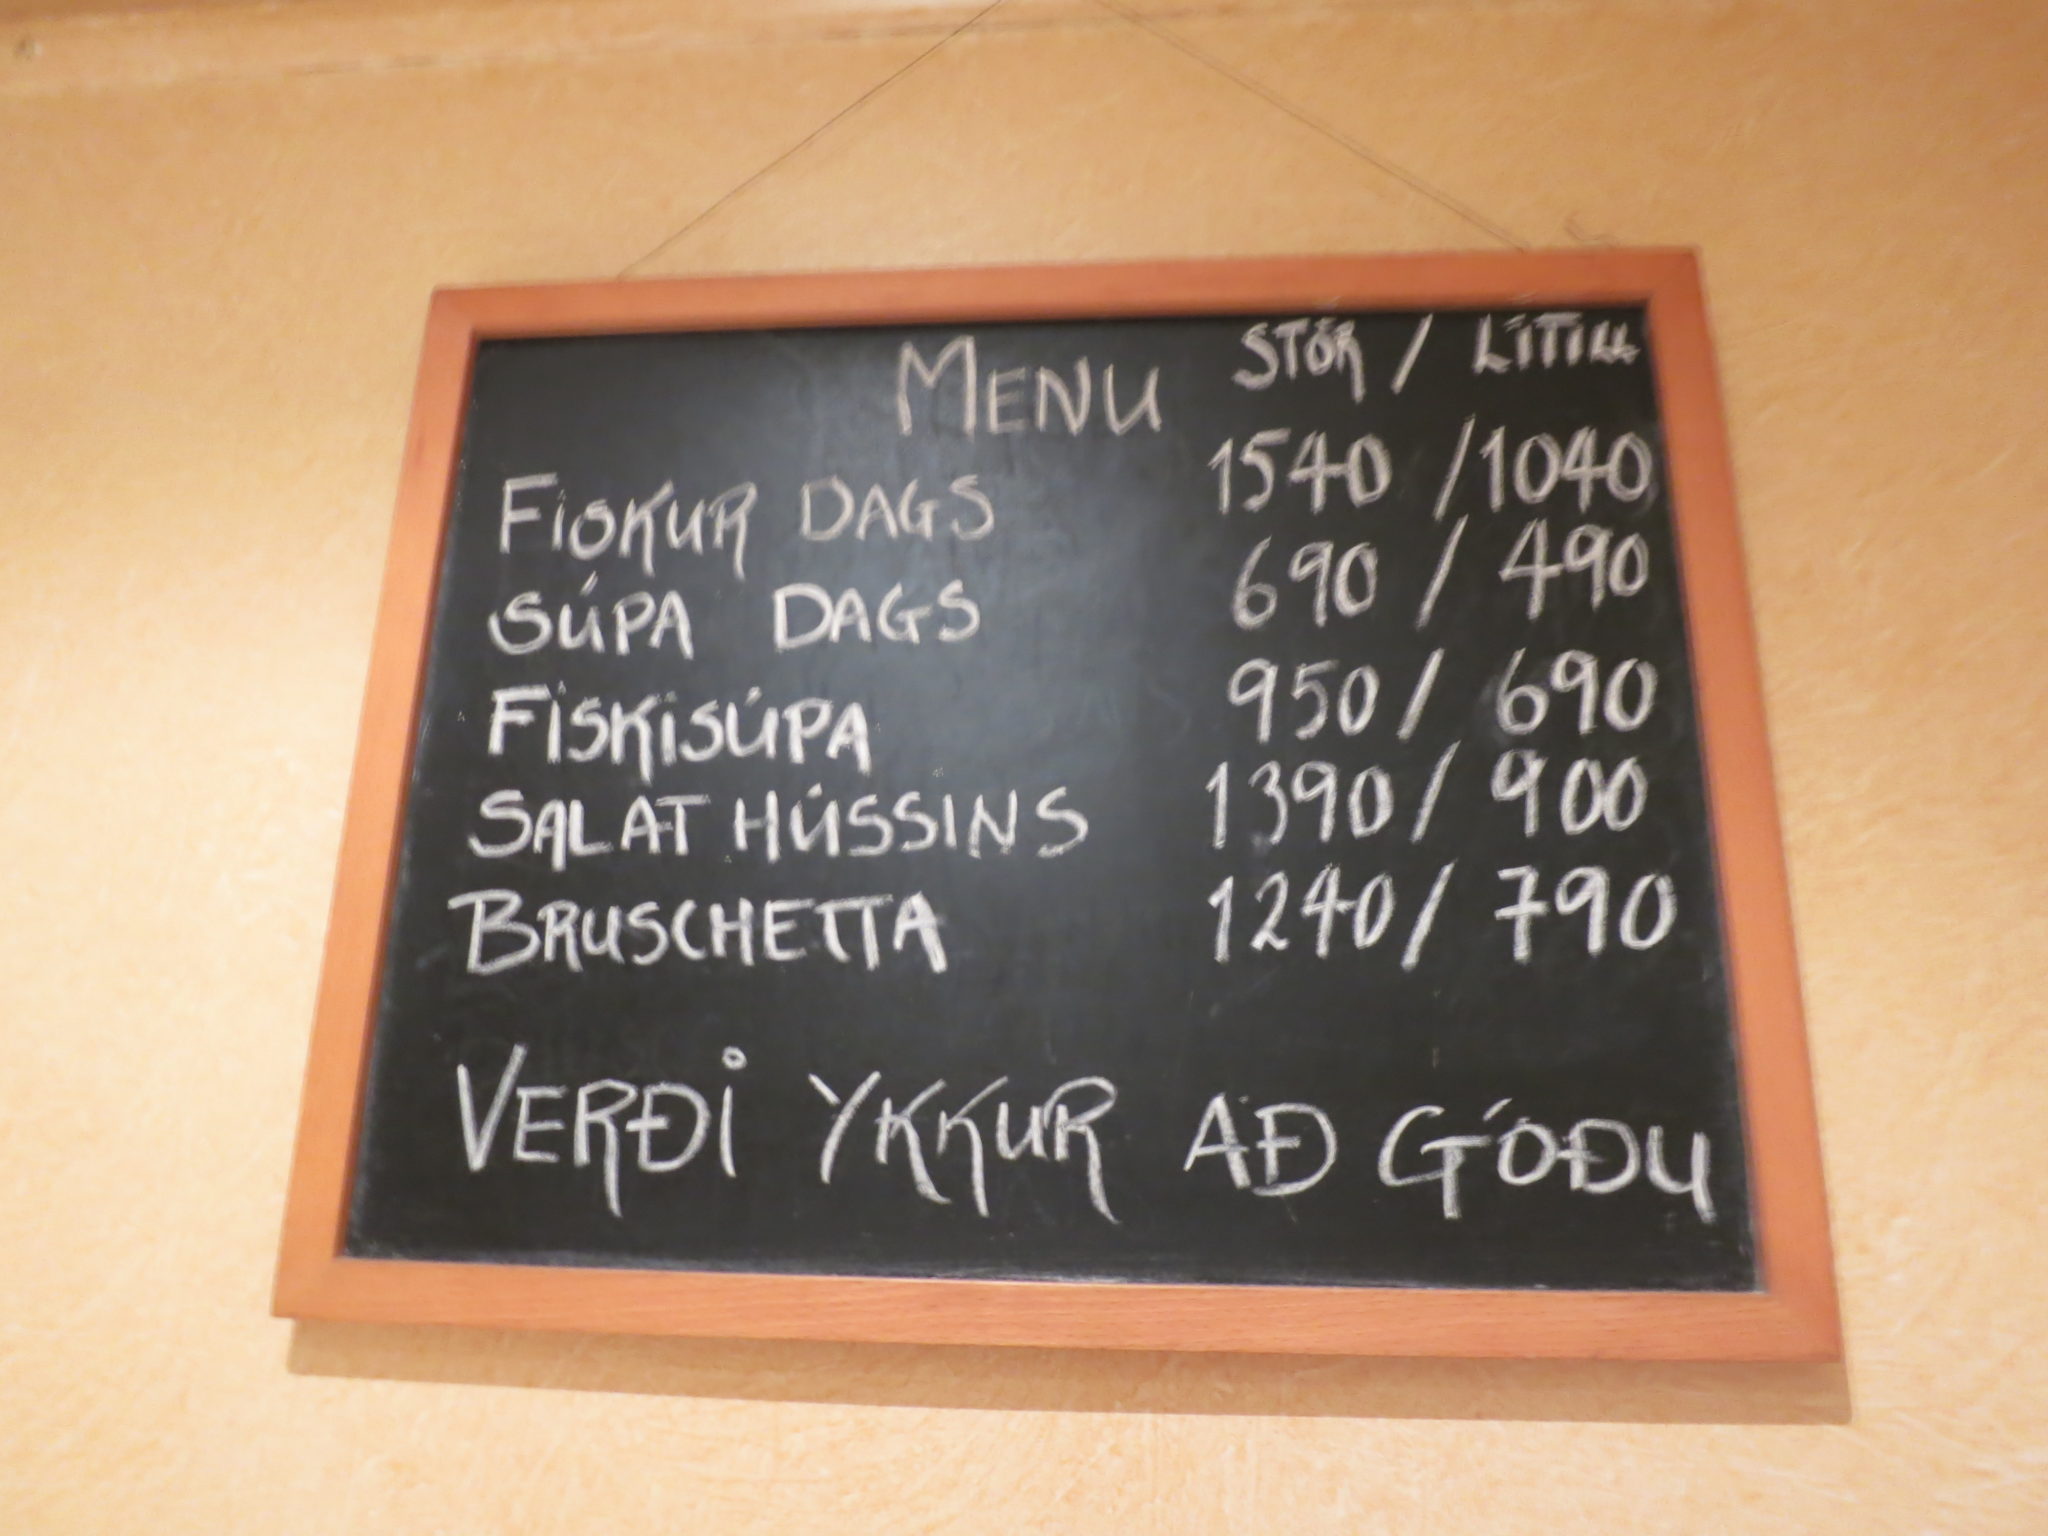 MENU STÓR / LÍTILL
FISKUR DAGS 1540 / 1040
SÚPA DAGS 690 / 490
FISKISÚPA 950 / 690
SALAT HÚSSINS 1390 / 900
BRUSCHETTA 1240 / 790
VERÐI YKKUR AÐ GÓÐU